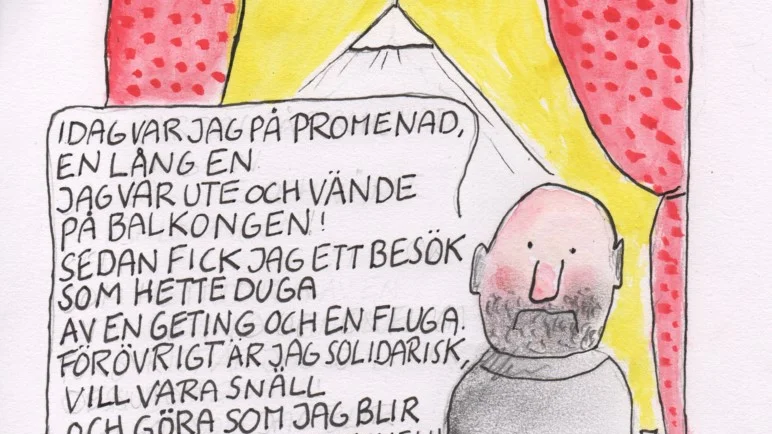 IDAG VAR JAG PÅ PROMENAD,
EN LÅNG EN
JAG VAR UTE OCH VÄNDE
PÅ BALKONGEN!
SEDAN FICK JAG ETT BESÖK
SOM HETTE DUGA
AV EN GETING OCH EN FLUGA.
FÖRÖVRIGT ÄR JAG SOLIDARISK,
VILL VARA SNÄLL
OCH GÖRA SOM JAG BLIR